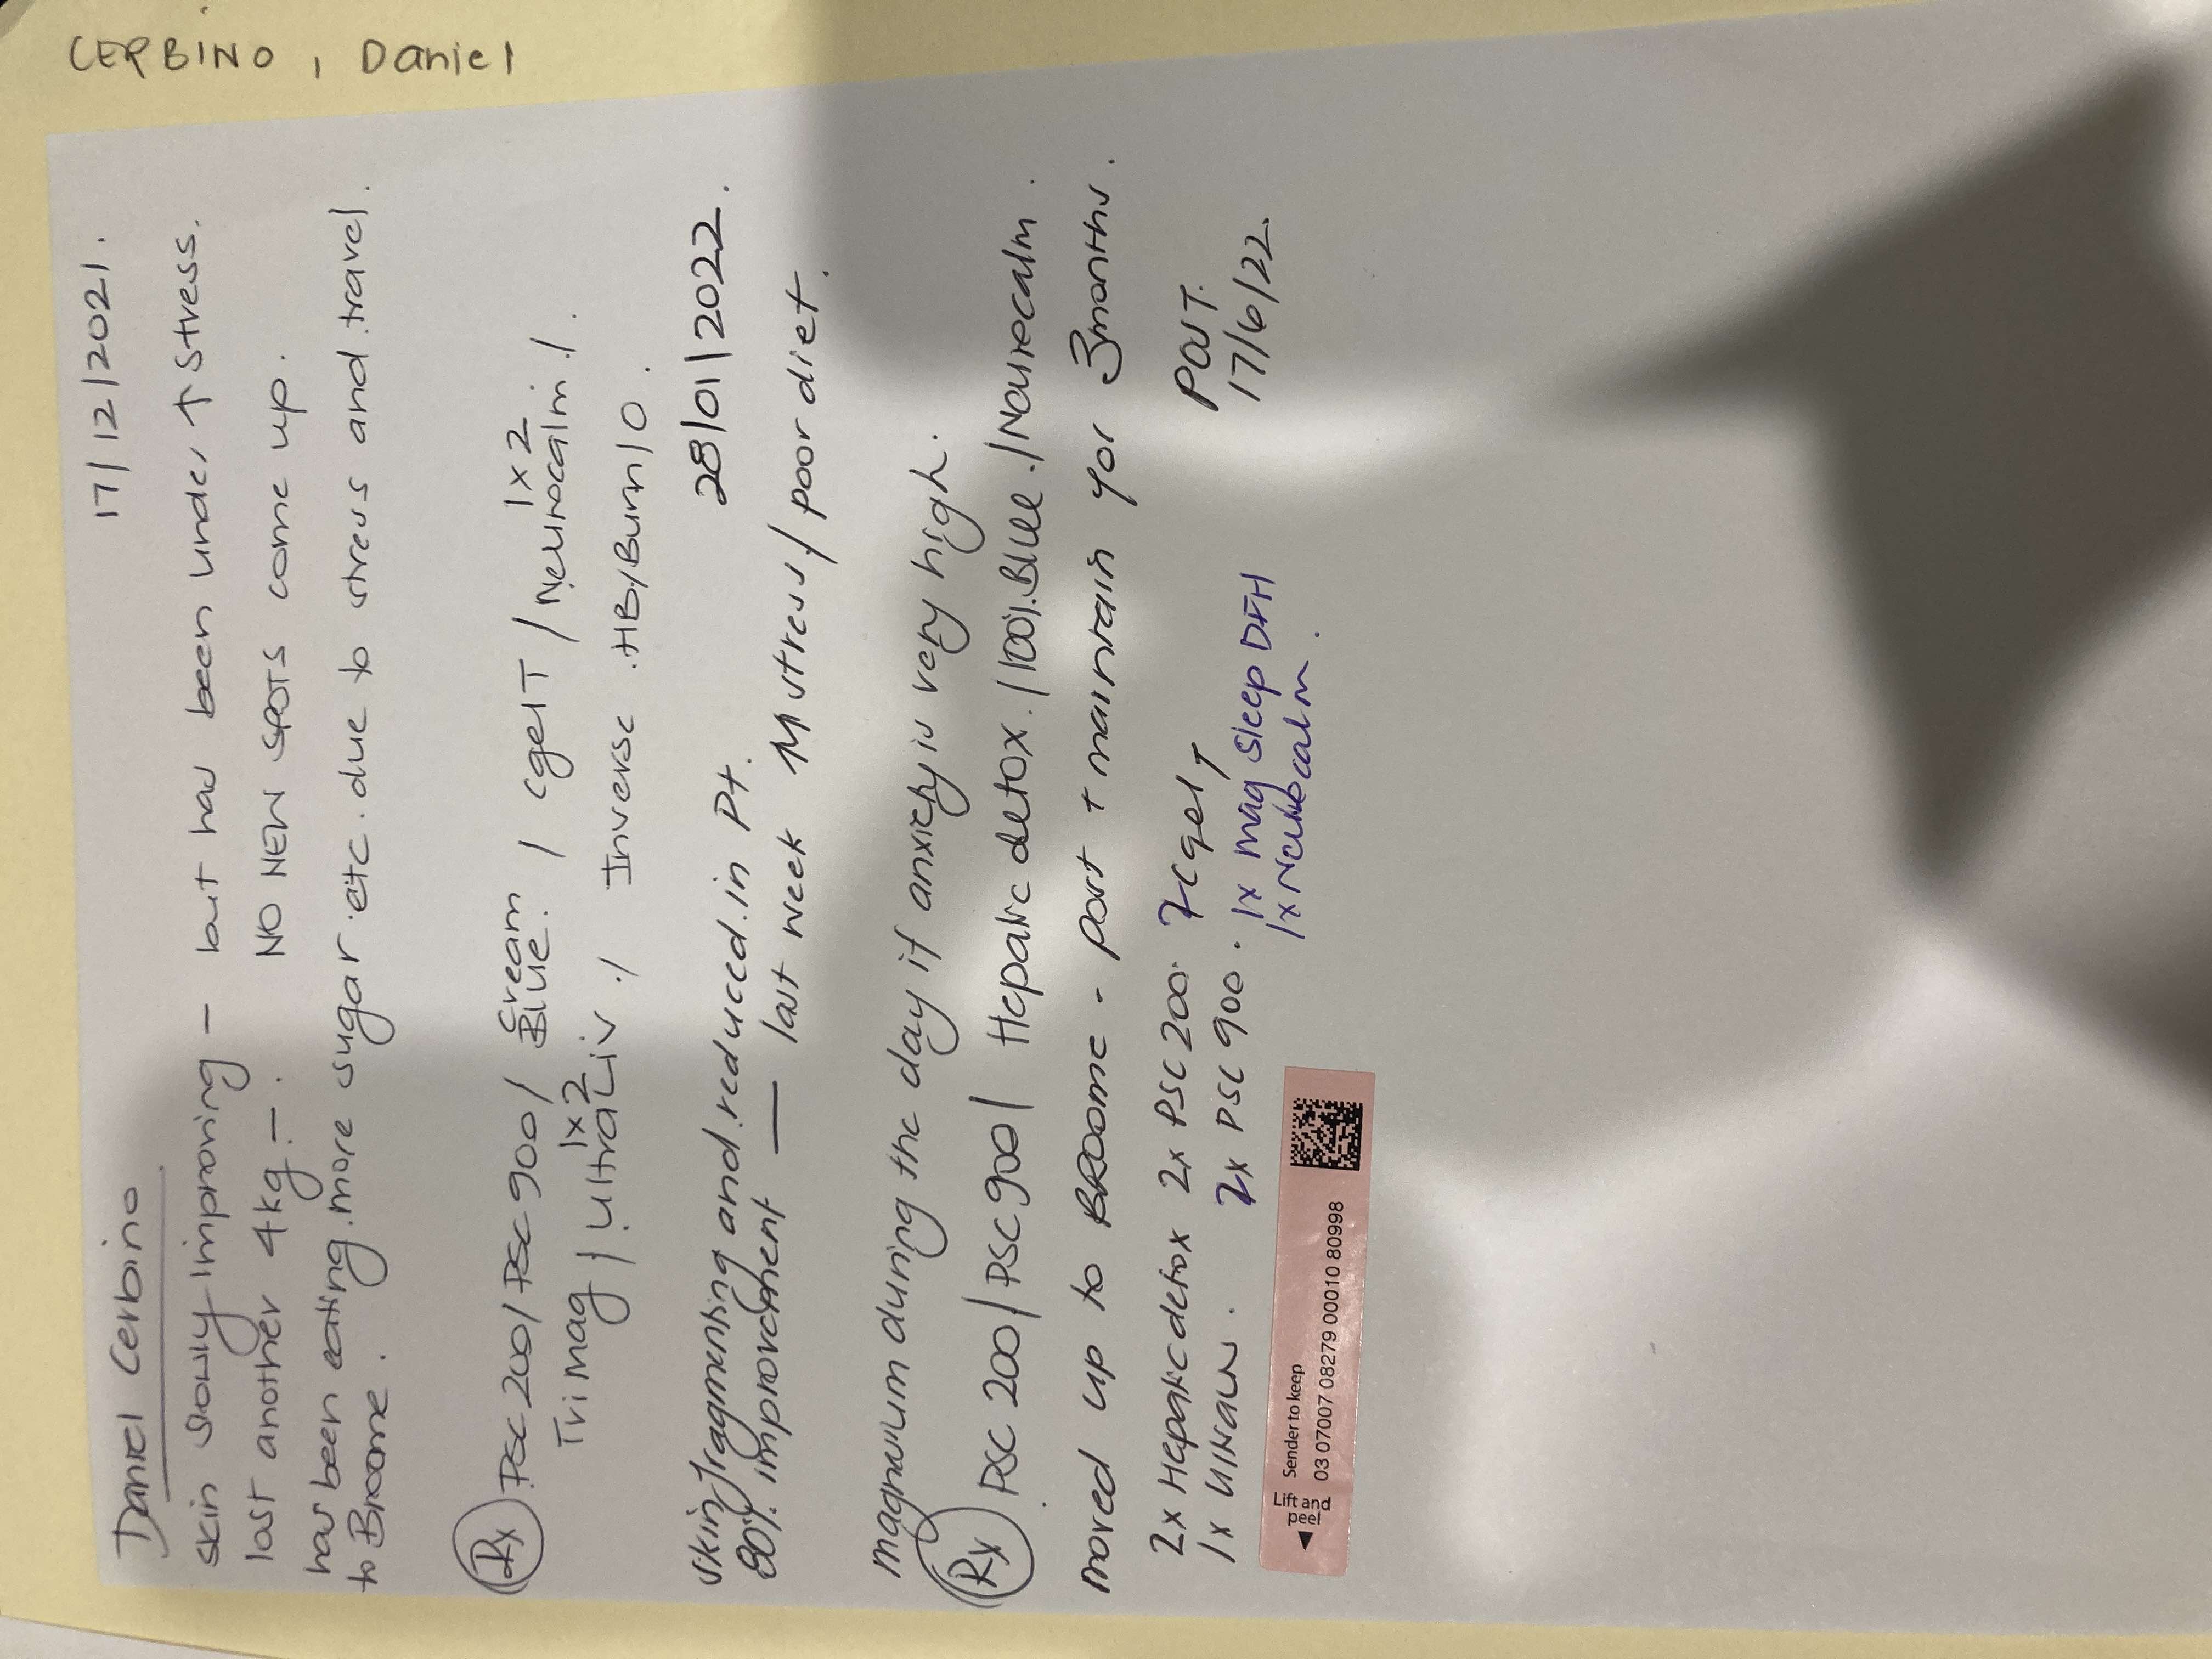 CERBINO, Daniel
Daniel Cerbino 17/12/2021.
skin slowly improving – but has been under ↑ stress.
lost another 4kg. –. NO NEW SPOTS come up.
has been eating more sugar etc. due to stress and travel.
to Broome.
Rx PSC 200 / PSC 900 / Cream Blue. / cgel T / Neurocalm 1x2 ./.
Trimag / UltraLiv 1x2 ./ Inverse .HB/Burn/O.
28/01/2022.
skin fragmenting and reduced in Pt.
80%. improvement — last week M stress/poor diet.
magnesium during the day if anxiety is very high.
Rx PSC 200 / PSC 900 / Hepatic detox. / 100%. Blue. / Neurecalm.
moved up to BROOME - post + maintain for 3months.
2x Hepatic detox 2x PSC 200. 2 cgel T POST.
1x 2x PSC 900. 1x mag sleep DFH 17/6/22.
1x Neurocalm.
◄ Lift and peel Sender to keep
03 07007 08279 00010 80998